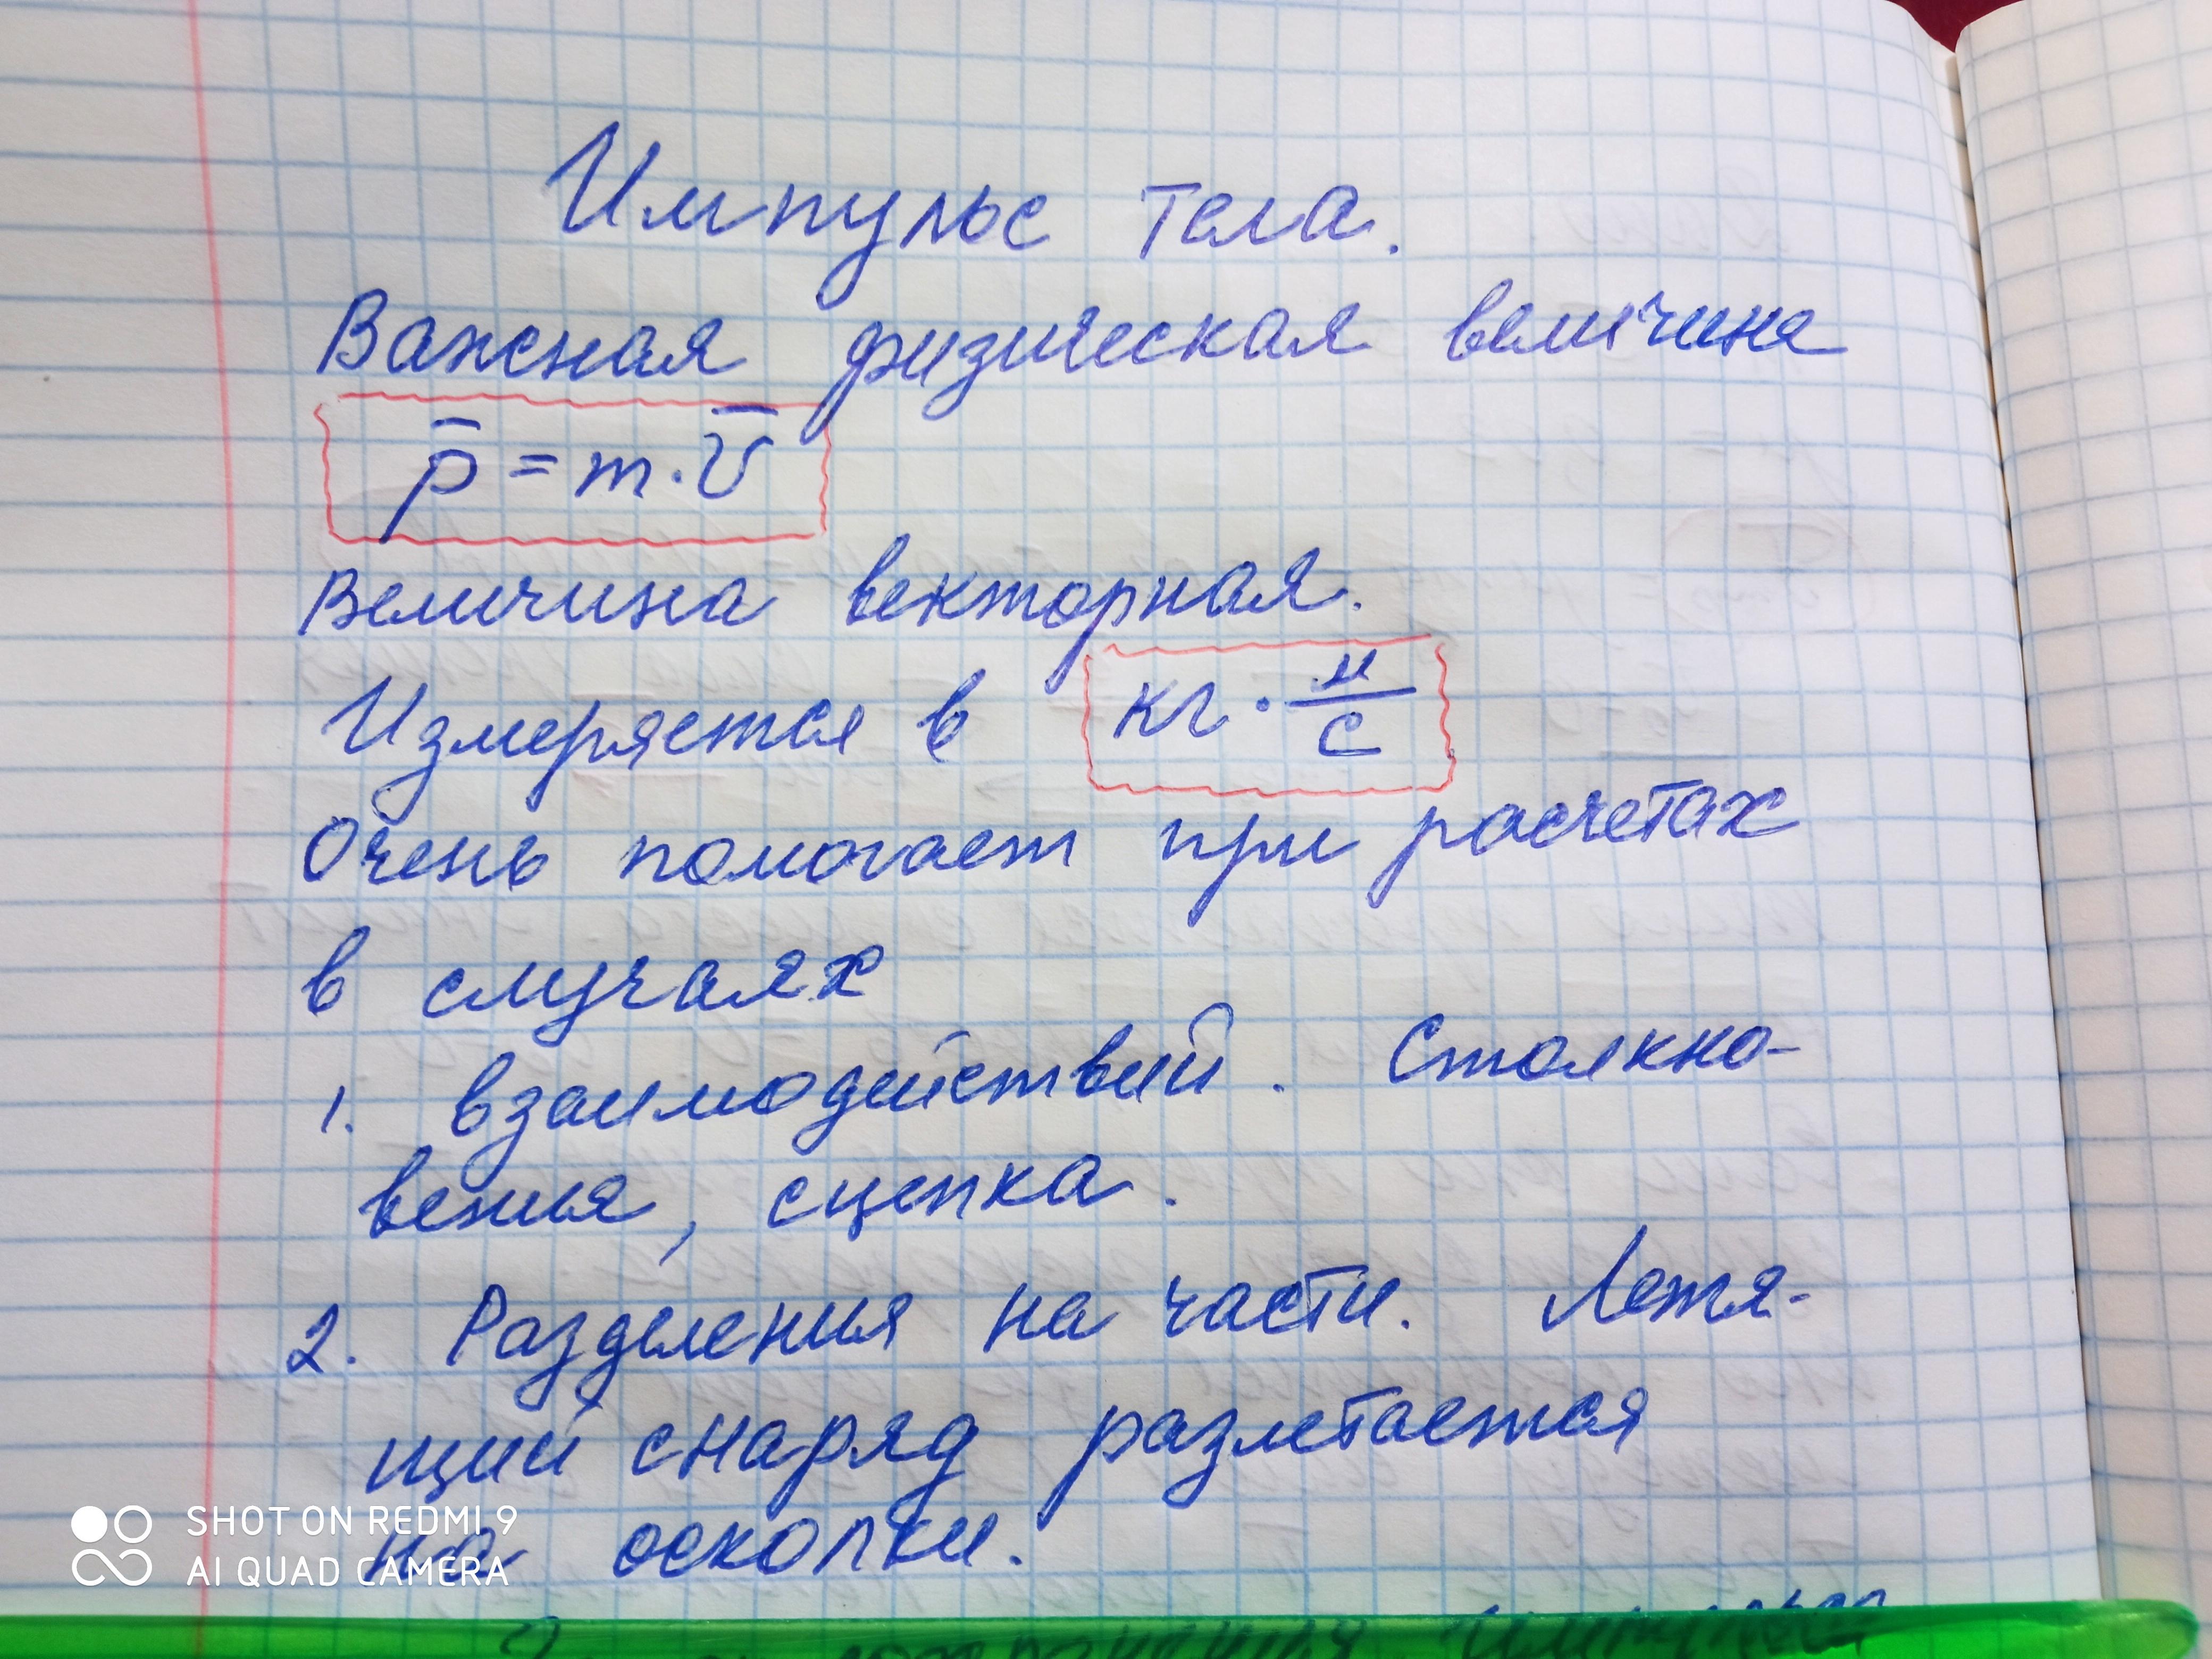 Импульс тела.
Важная физическая величина
p̅ = m · v̅
Величина векторная.
Измеряется в кг · м/с
Очень помогает при расчетах
в случаях
1. взаимодействий. Столкно-
вения, сцепка.
2. Разделения на части. Летя-
щий снаряд разлетается
на осколки.
сохранения импульса
SHOT ON REDMI 9
AI QUAD CAMERA